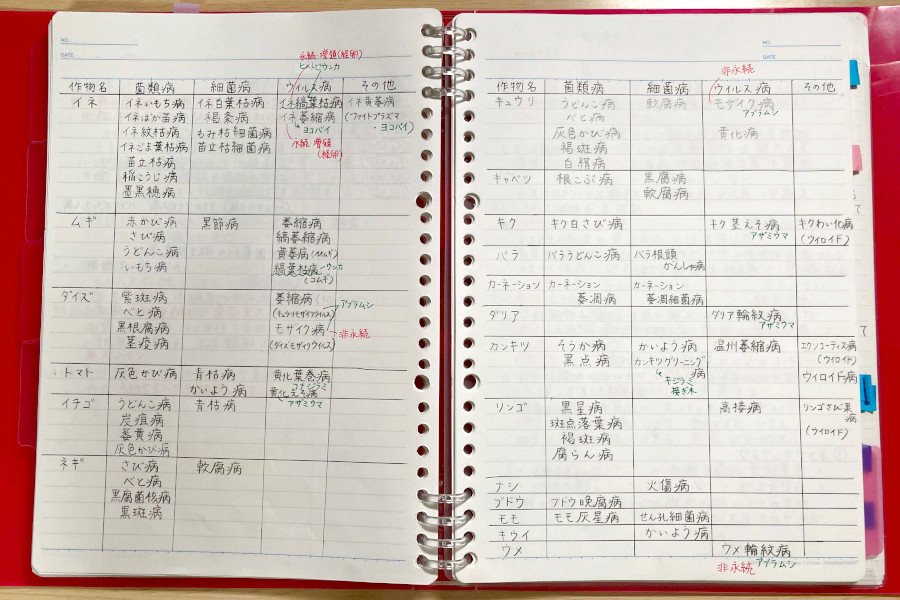 NO.
DATE
永続・増殖(経卵)
ヒメトビウンカ
作物名 菌類病 細菌病 ウィルス病 その他
イネ イネいもち病 イネ白葉枯病 イネ縞葉枯病 イネ黄萎病
イネばか苗病 褐条病 イネ萎縮病 (ファイトプラズマ
イネ紋枯病 もみ枯細菌病 ヨコバイ ・ヨコバイ)
イネごま葉枯病 苗立枯細菌病 永続・増殖
(経卵)
苗立枯病
稲こうじ病
墨黒穂病
ムギ 赤かび病 黒節病 萎縮病
さび病 縞萎縮病
うどんこ病 黄萎病
いもち病 縞葉枯病 ウンカ
(コムギ)
ダイズ 紫斑病 萎縮病
べと病 (キュウリモザイクウイルス) アブラムシ
黒根腐病 モザイク病 非永続
茎疫病 (ダイズモザイクウイルス)
トマト 灰色かび病 青枯病 黄化葉巻病
コナジラミ
かいよう病 黄化えそ病
アザミウマ
イチゴ うどんこ病 青枯病
炭疽病
萎黄病
灰色かび病
ネギ さび病 軟腐病
べと病
黒腐菌核病
黒斑病
NO.
DATE
非永続
作物名 菌類病 細菌病 ウィルス病 その他
キュウリ うどんこ病 軟腐病 モザイク病
べと病 アブラムシ
灰色かび病 黄化病
褐斑病
白絹病
キャベツ 根こぶ病 黒腐病
軟腐病
キク キク白さび病 キク茎えそ病 キクわい化病
アザミウマ (ウイロイド)
バラ バラうどんこ病 バラ根頭
がんしゅ病
カーネーション カーネーション カーネーション
萎凋病 萎凋細菌病
ダリア ダリア輪紋病
アザミウマ
カンキツ そうか病 かいよう病 温州萎縮病 エクソコーティス病
黒点病 カンキツグリーニング病 (ウイロイド)
キジラミ ウイロイド病
接ぎ木
リンゴ 黒星病 高接病 リンゴさび果病
斑点落葉病 (ウイロイド)
褐斑病
腐らん病
ナシ 火傷病
ブドウ ブドウ晩腐病
モモ モモ灰星病 せん孔細菌病
キウイ かいよう病
ウメ ウメ輪紋病
非永続 アブラムシ